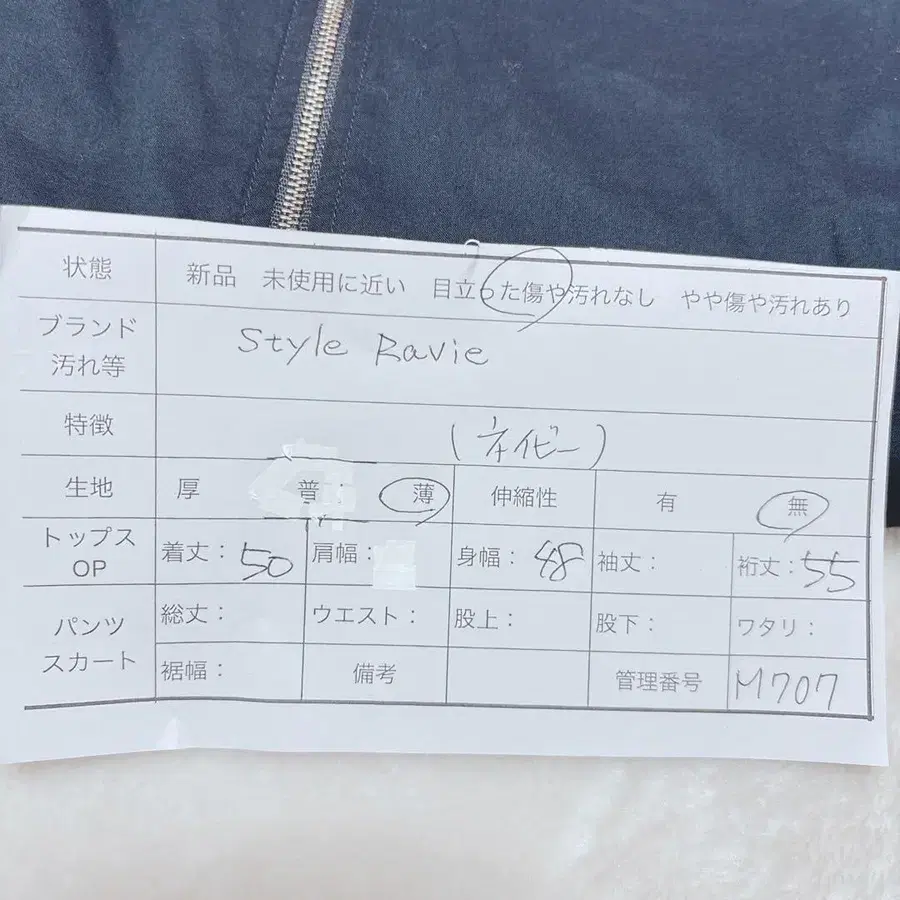 状態 新品 未使用に近い 目立った傷や汚れなし やや傷や汚れあり
ブランド
汚れ等
Style Ravie
特徴 (ネイビー)
生地 厚 普 薄 伸縮性 有 無
トップス
OP
着丈: 50 肩幅: 身幅: 48 袖丈: 裄丈: 55
パンツ
スカート
総丈: ウエスト: 股上: 股下: ワタリ:
裾幅: 備考 管理番号 M707